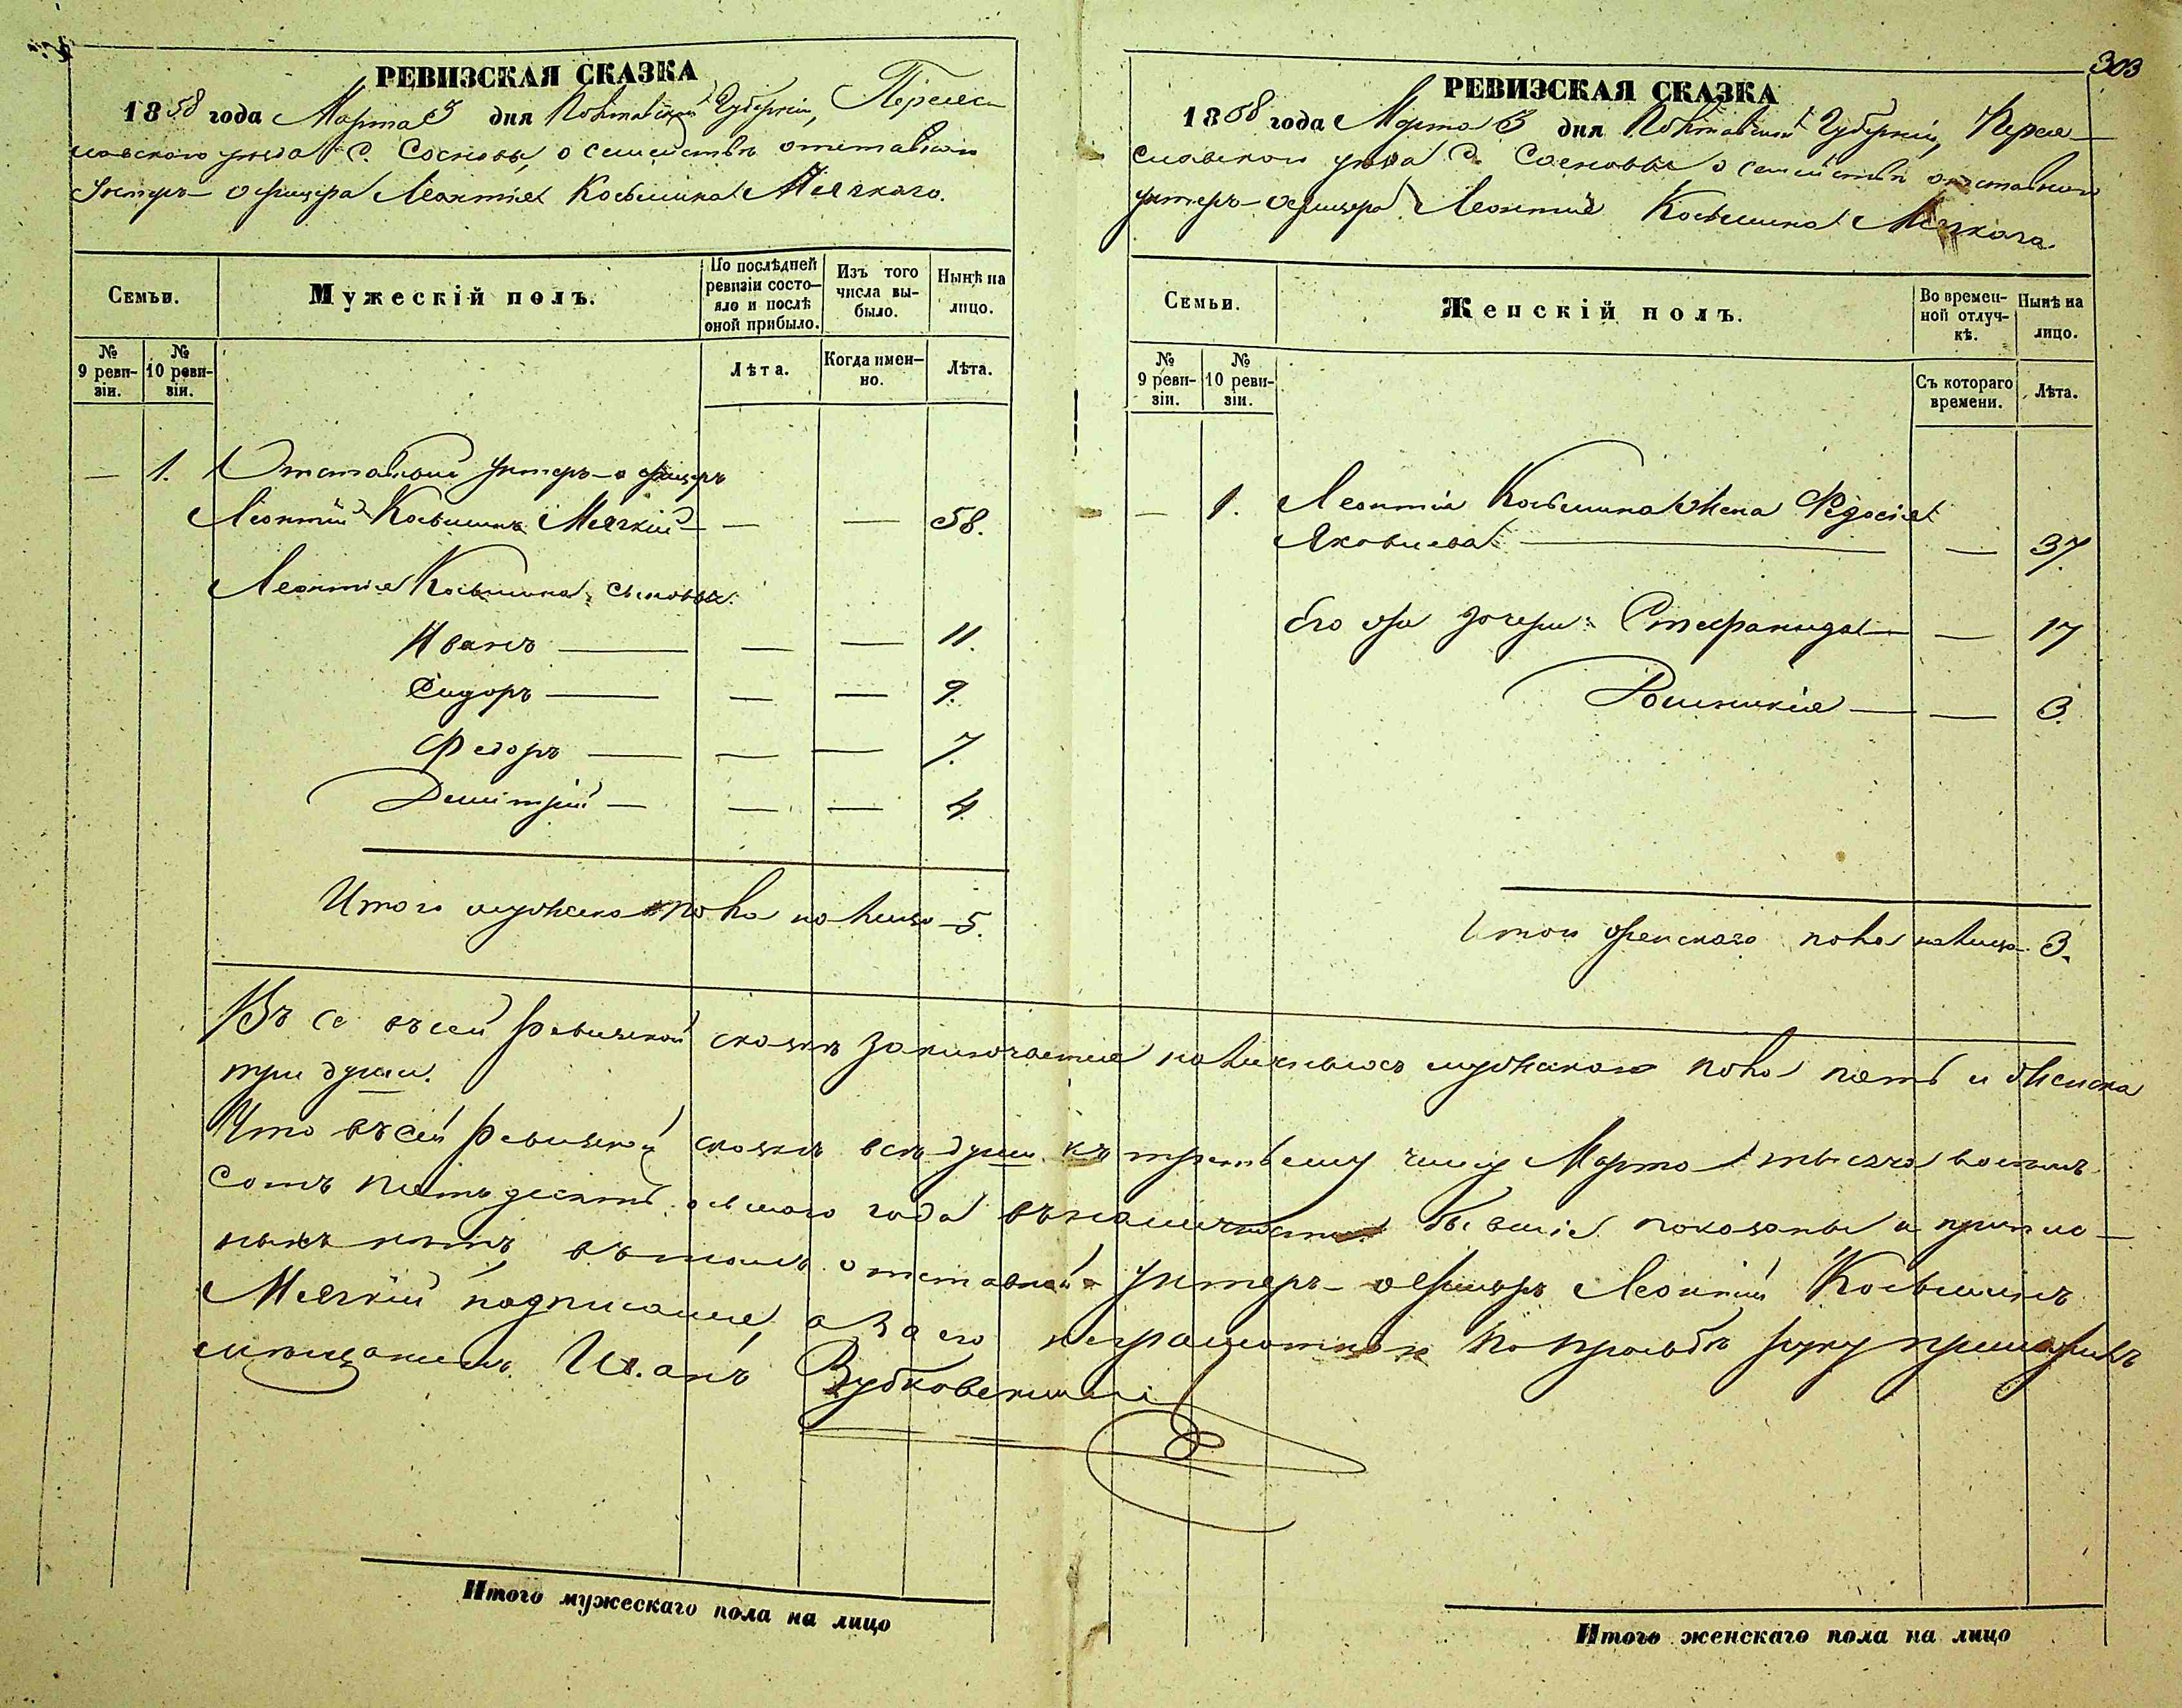 303
РЕВИЗСКАЯ СКАЗКА
1858 года Марта 3 дня Полтавской Губерніи, Переяс-
лавского уезда С. Сосновы, о семействѣ отставного
Унтеръ-офицера Леонтія Косьмина Мягкаго.
Семьи.
Мужескій полъ.
По послѣдней ревизіи состояло и послѣ оной прибыло.
Изъ того числа выбыло.
Нынѣ на лицо.
№ 9 ревизіи.
№ 10 ревизіи.
Лѣта.
Когда именно.
Лѣта.
— 1. Отставной унтеръ-офицеръ
Леонтій Косьминъ Мягкій — — — 58.
Леонтія Косьмина сыновья:
Иванъ — — — 11.
Сидоръ — — — 9.
Федоръ — — — 7.
Димитрій — — — 4.
Итого мужеска пола на лицо 5.
РЕВИЗСКАЯ СКАЗКА
1858 года Марта 3 дня Полтавской Губерніи, Перея-
славского уезда С. Сосновы о семействѣ отставного
унтеръ-офицера Леонтія Косьмина Мягкаго.
Семьи.
Женскій полъ.
Во временной отлучкѣ.
Нынѣ на лицо.
№ 9 ревизіи.
№ 10 ревизіи.
Съ котораго времени.
Лѣта.
— 1. Леонтія Косьмина жена Федосія
Яковлева — — 37.
Его же дочери: Стефанида — — 17
— — 3.
Итого женскаго пола на лицо 3.
въ сей ревизской сказкѣ заключается наличныхъ мужескаго пола пять и женска
три души.
Что въ сей ревизской сказкѣ всѣ души къ третьему числу Марта тысяча восемь
сотъ пятьдесятъ осьмого года въ наличности бывшіе показаны и
нѣтъ, въ томъ отставной унтеръ-офицеръ Леонтій Косьминъ
Мягкій подписался, а за его по прозьбѣ руку приложилъ
мѣщанинъ Иванъ
Итого мужескаго пола на лицо
Итого женскаго пола на лицо